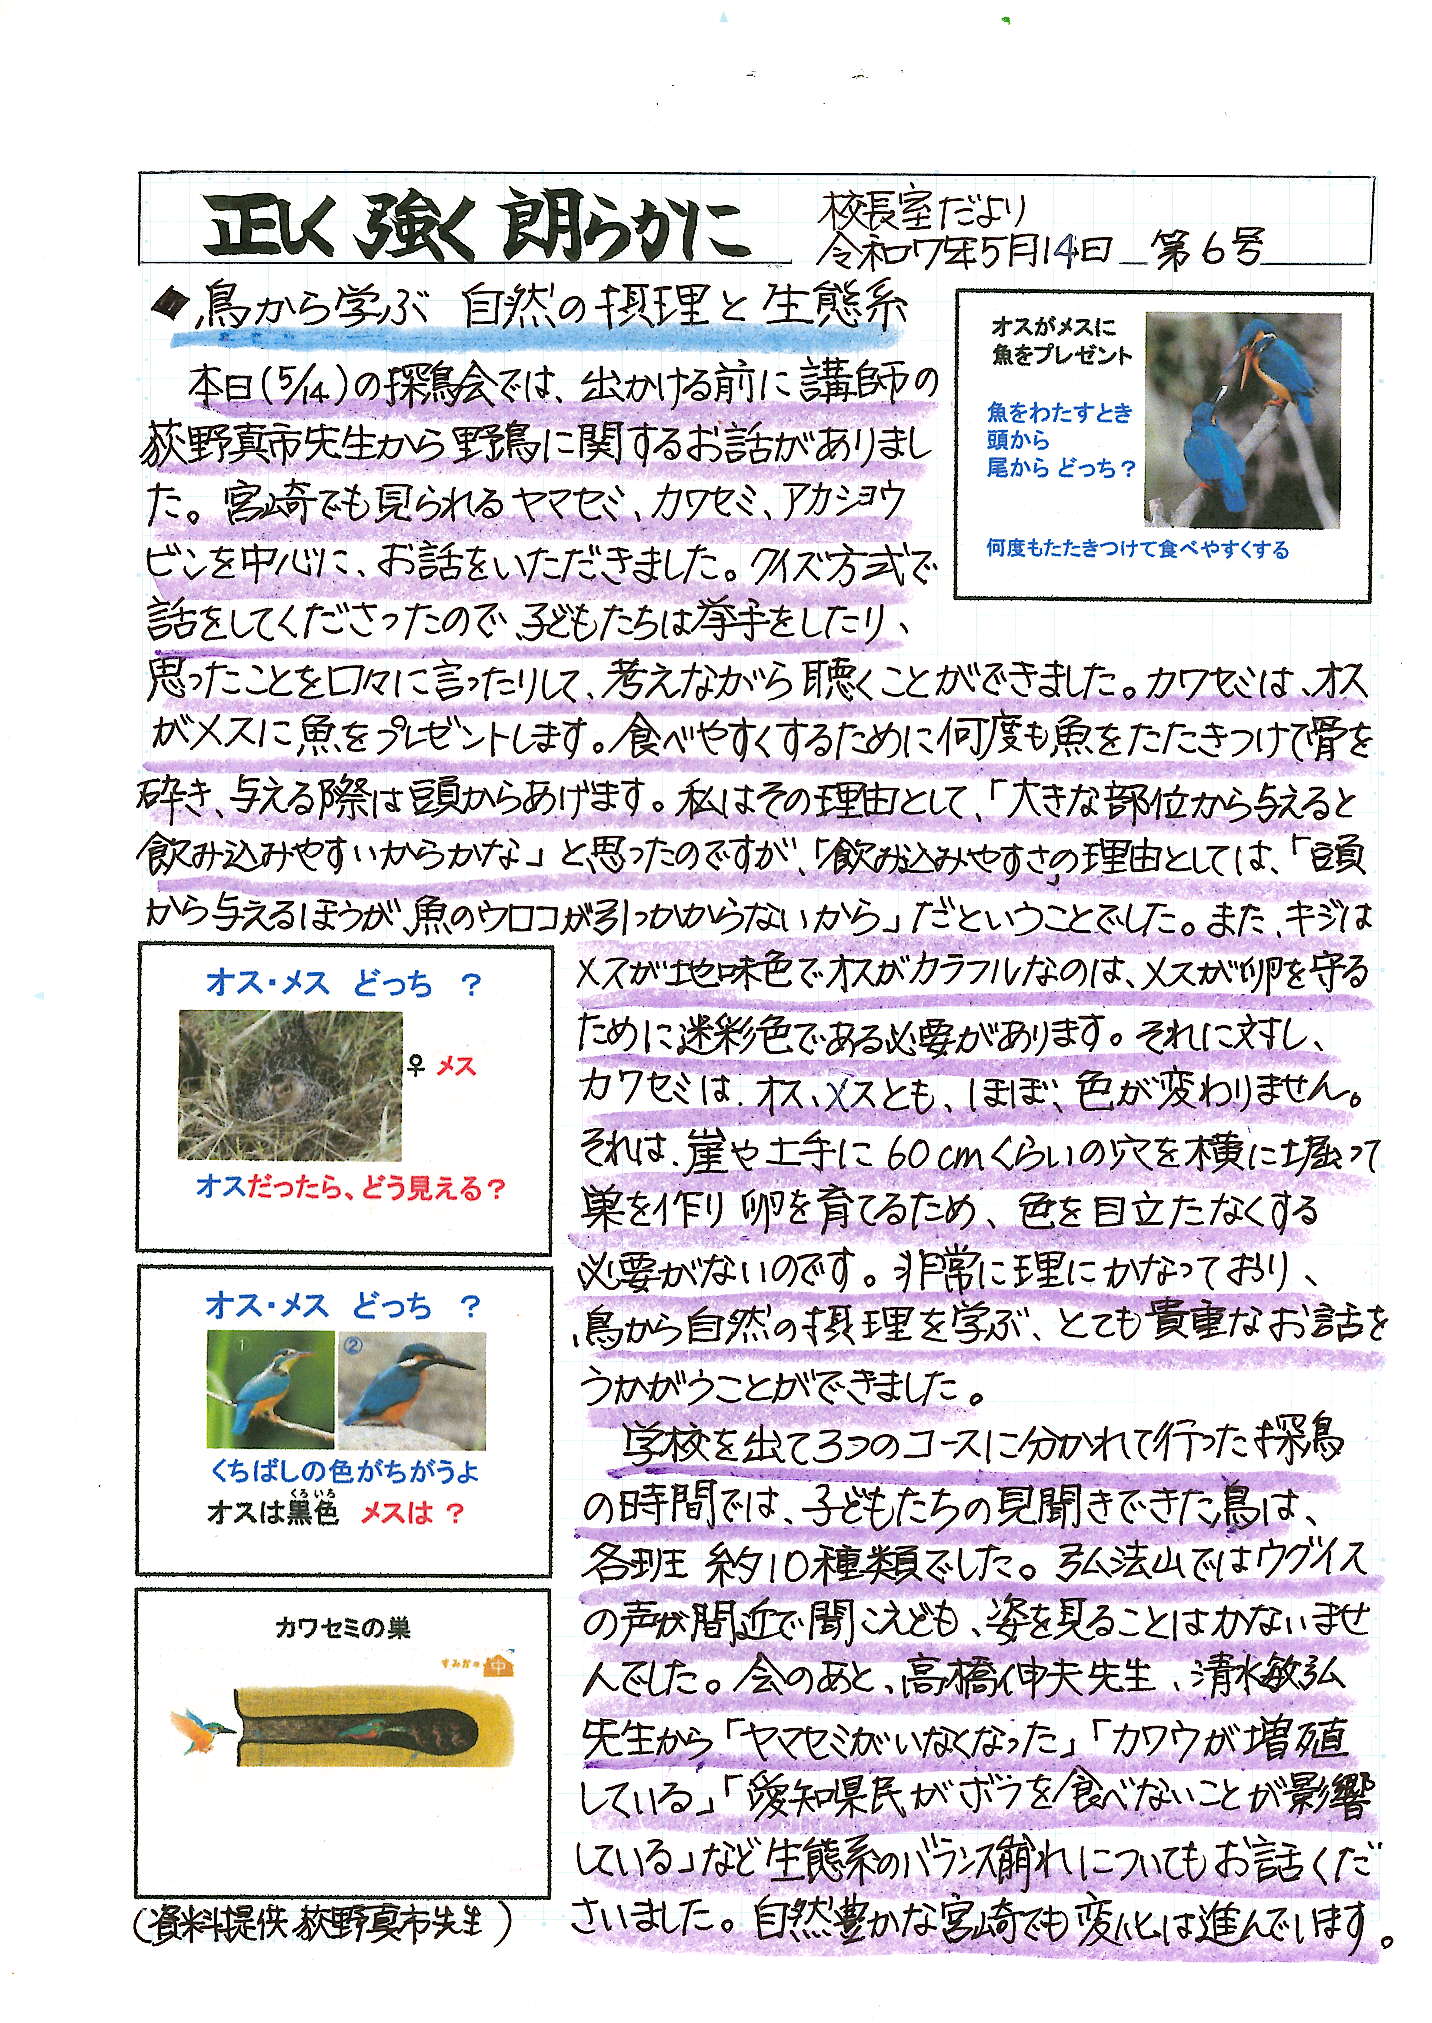 正しく 強く 朗らかに
校長室だより
令和7年5月14日 第6号
◆鳥から学ぶ 自然の摂理と生態系
本日(5/14)の探鳥会では、出かける前に講師の
荻野真市先生から野鳥に関するお話がありまし
た。宮崎でも見られるヤマセミ、カワセミ、アカショウ
ビンを中心に、お話をいただきました。クイズ方式で
話をしてくださったので、子どもたちは挙手をしたり、
思ったことを口々に言ったりして、考えながら聴くことができました。カワセミは、オス
がメスに魚をプレゼントします。食べやすくするために何度も魚をたたきつけて骨を
砕き、与える際は頭からあげます。私はその理由として、「大きな部位から与えると
飲み込みやすいからかな」と思ったのですが、「飲み込みやすさの理由としては、「頭
から与えるほうが、魚のウロコが引っかからないから」だということでした。また、キジは
メスが地味色でオスがカラフルなのは、メスが卵を守る
ために迷彩色である必要があります。それに対し、
カワセミは、オス、メスとも、ほぼ、色が変わりません。
それは、崖や土手に60cmくらいの穴を横に堀って
巣を作り卵を育てるため、色を目立たなくする
必要がないのです。非常に理にかなっており、
鳥から自然の摂理を学ぶ、とても貴重なお話を
うかがうことができました。
学校を出て3つのコースに分かれて行った探鳥
の時間では、子どもたちの見聞きできた鳥は、
各班 約10種類でした。弘法山ではウグイス
の声が間近で聞こえども、姿を見ることはかないませ
んでした。会のあと、高橋伸夫先生、清水敏弘
先生から「ヤマセミがいなくなった」「カワウが増殖
している」「愛知県民がボラを食べないことが影響
している」など生態系のバランス崩れについてもお話くだ
さいました。自然豊かな宮崎でも変化は進んでいます。
オスがメスに
魚をプレゼント
魚をわたすとき
頭から
尾から どっち?
何度もたたきつけて食べやすくする
オス・メス どっち ?
♀ メス
オスだったら、どう見える?
オス・メス どっち ?
1
②
くちばしの色がちがうよ
くろ いろ
オスは黒色 メスは ?
カワセミの巣
すみかの中
(資料提供 荻野真市先生)